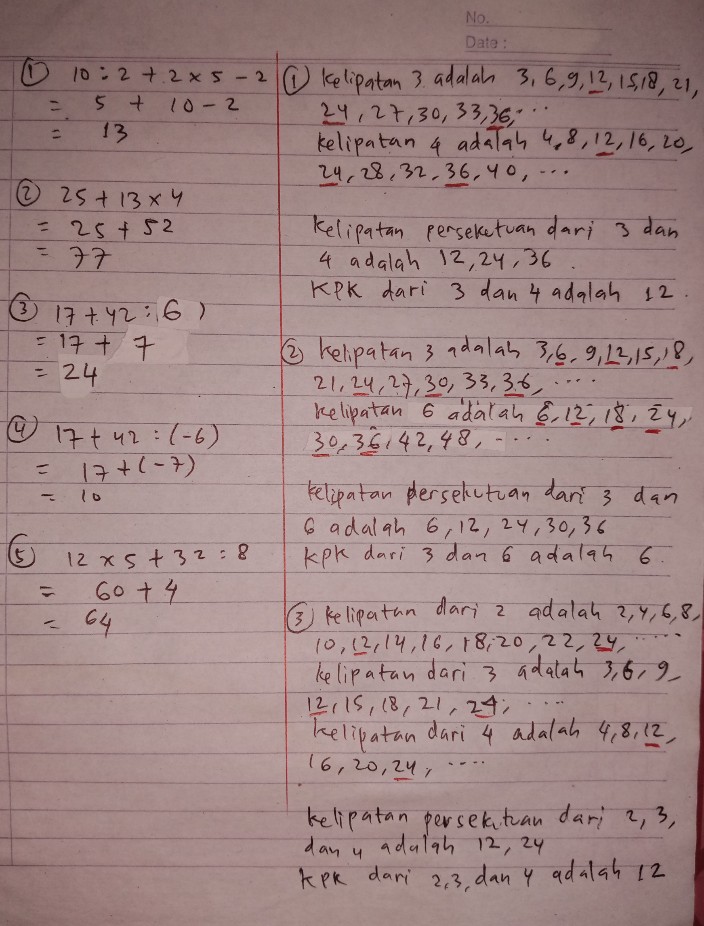 No.
Date :
① 10 : 2 + 2 x 5 - 2
= 5 + 10 - 2
= 13
② 25 + 13 x 4
= 25 + 52
= 77
③ 17 + 42 : 6 )
= 17 + 7
= 24
④ 17 + 42 : (-6)
= 17 + (-7)
= 10
⑤ 12 x 5 + 32 : 8
= 60 + 4
= 64
① Kelipatan 3 adalah 3, 6, 9, 12, 15, 18, 21,
24, 27, 30, 33, 36, ...
kelipatan 4 adalah 4, 8, 12, 16, 20,
24, 28, 32, 36, 40, ...
Kelipatan persekutuan dari 3 dan
4 adalah 12, 24, 36.
KPK dari 3 dan 4 adalah 12.
② kelipatan 3 adalah 3, 6, 9, 12, 15, 18,
21, 24, 27, 30, 33, 36, ....
kelipatan 6 adalah 6, 12, 18, 24,
30, 36, 42, 48, ....
kelipatan persekutuan dari 3 dan
6 adalah 6, 12, 24, 30, 36
KPK dari 3 dan 6 adalah 6.
③ kelipatan dari 2 adalah 2, 4, 6, 8,
10, 12, 14, 16, 18, 20, 22, 24, .....
kelipatan dari 3 adalah 3, 6, 9,
12, 15, 18, 21, 24, ....
kelipatan dari 4 adalah 4, 8, 12,
16, 20, 24, ....
kelipatan persekutuan dari 2, 3,
dan 4 adalah 12, 24
KPK dari 2, 3, dan 4 adalah 12